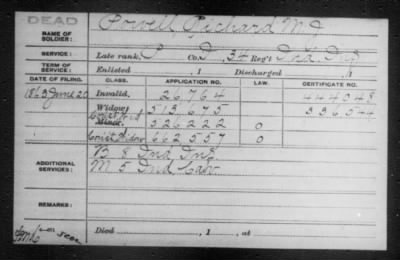 DEAD
NAME OF SOLDIER: Powell Richard M. J.
SERVICE: Late rank, P Co. D, 34 Reg't Ind. Inf.
TERM OF SERVICE: Enlisted , 1 Discharged , 1
DATE OF FILING. CLASS. APPLICATION NO. LAW. CERTIFICATE NO.
1863 June 20 Invalid, 26764 44048
Widow, 513,675 336544
Minor, 526222 0
Cont Widow 662557 0
ADDITIONAL SERVICES: B 8 Ind Inf
M 5 Ind Cav.
REMARKS:
Died , 1 , at